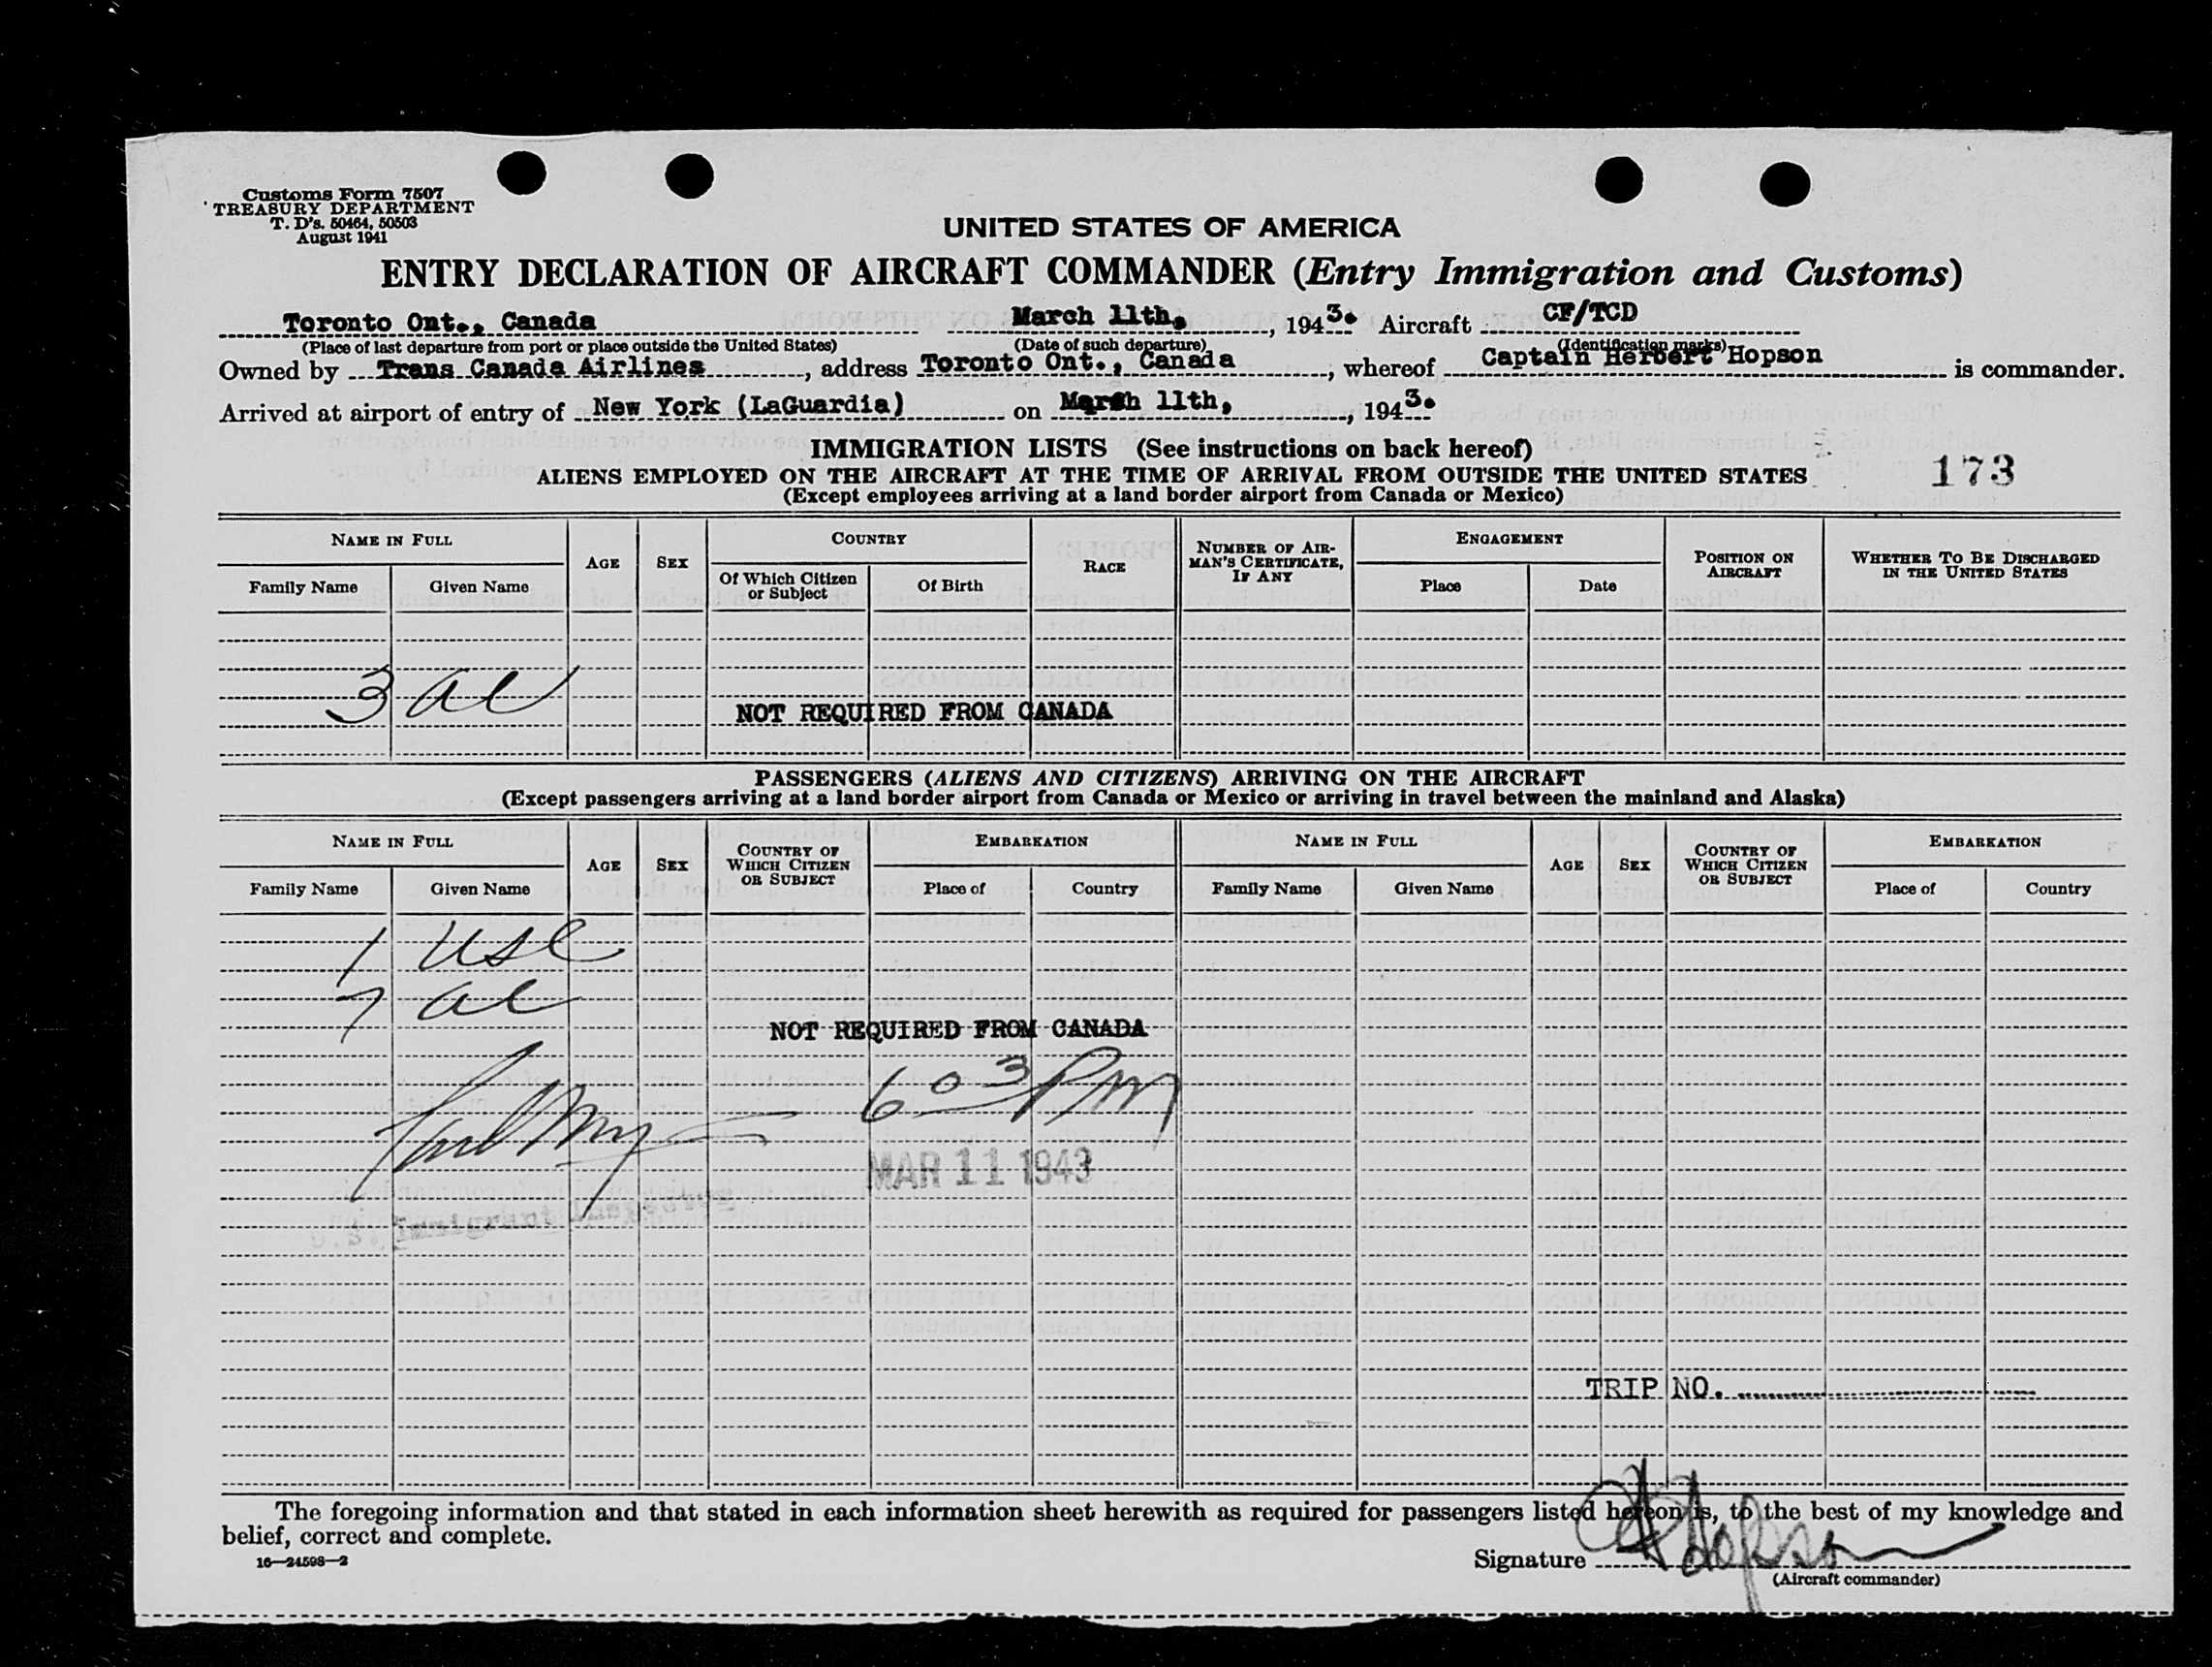 Customs Form 7507
TREASURY DEPARTMENT
T. D's. 50464, 50503
August 1941
UNITED STATES OF AMERICA
ENTRY DECLARATION OF AIRCRAFT COMMANDER (Entry Immigration and Customs)
Toronto Ont., Canada March 11th, , 1943. Aircraft CF/TCD
(Place of last departure from port or place outside the United States) (Date of such departure) (Identification marks)
Owned by Trans Canada Airlines , address Toronto Ont., Canada , whereof Captain Herbert Hopson is commander.
Arrived at airport of entry of New York (LaGuardia) on March 11th, , 1943.
IMMIGRATION LISTS (See instructions on back hereof)
ALIENS EMPLOYED ON THE AIRCRAFT AT THE TIME OF ARRIVAL FROM OUTSIDE THE UNITED STATES 173
(Except employees arriving at a land border airport from Canada or Mexico)
NAME IN FULL AGE SEX COUNTRY RACE NUMBER OF AIRMAN'S CERTIFICATE, IF ANY ENGAGEMENT POSITION ON AIRCRAFT WHETHER TO BE DISCHARGED IN THE UNITED STATES
Family Name Given Name Of Which Citizen or Subject Of Birth Place Date
3 al
NOT REQUIRED FROM CANADA
PASSENGERS (ALIENS AND CITIZENS) ARRIVING ON THE AIRCRAFT
(Except passengers arriving at a land border airport from Canada or Mexico or arriving in travel between the mainland and Alaska)
NAME IN FULL AGE SEX COUNTRY OF WHICH CITIZEN OR SUBJECT EMBARKATION NAME IN FULL AGE SEX COUNTRY OF WHICH CITIZEN OR SUBJECT EMBARKATION
Family Name Given Name Place of Country Family Name Given Name Place of Country
1 USC
7 al
NOT REQUIRED FROM CANADA
6 03 PM
MAR 11 1943
U.S. Immigrant Inspector
TRIP NO.
The foregoing information and that stated in each information sheet herewith as required for passengers listed hereon is, to the best of my knowledge and
belief, correct and complete.
16—24598—2
Signature H Hopson
(Aircraft commander)